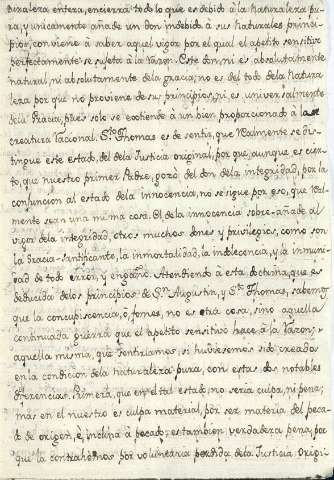 turaleza entera, encierra todo lo que es debido à la Naturaleza pu-
ra, y unicamente añade un don indebido à sus Naturales princi-
pios, conviene à saber aquel vigor por el qual el apetito sensitivo
perfectamente se sujeta à la razon. Este don, ni es absolutamente
natural, ni absolutamente de la gracia; no es del todo dela Natura
leza por que no proviene de sus principios; ni es universalmente
dela Gracia, pues solo se extiende à un bien proporcionado à la
creatura racional. Sto. Thomas es de sentir, que realmente se dis-
tingue este estado, del dela Justicia original, por que, aunque es cier-
to, que nuestro primer Padre, gozò del don dela integridad, por la
conjuncion al estado dela innocencia, no se sigue por eso, que real-
mente sean una misma cosa. El dela innocencia sobre-añade al
vigor dela integridad, otros muchos dones y privilegios, como son
la Gracia-santificante, la inmortalidad, la indolencia, y la inmuni-
dad de todo error, y engaño. Atendiendo à esta doctrina, que es
deducida delos principios de Sn. Augustin, y Sto. Thomas, sabemos
que la concupiscencia, ò fomes, no es otra cosa, sino aquella
continuada guerra que el apetito sensitivo hace à la razon, y
aquella misma, que sentiriamos, si hubiesemos sido creados
en la condicion dela naturaleza pura, con estas dos notables
diferencias. Primera, que en el tal estado, no seria culpa, ni pena;
mas en el nuestro es culpa material, por ser materia del peca-
do de origen, è inclina à pecado; es tambien verdadera pena, por
que la contrahemos por voluntaria perdida dela Justicia Origi